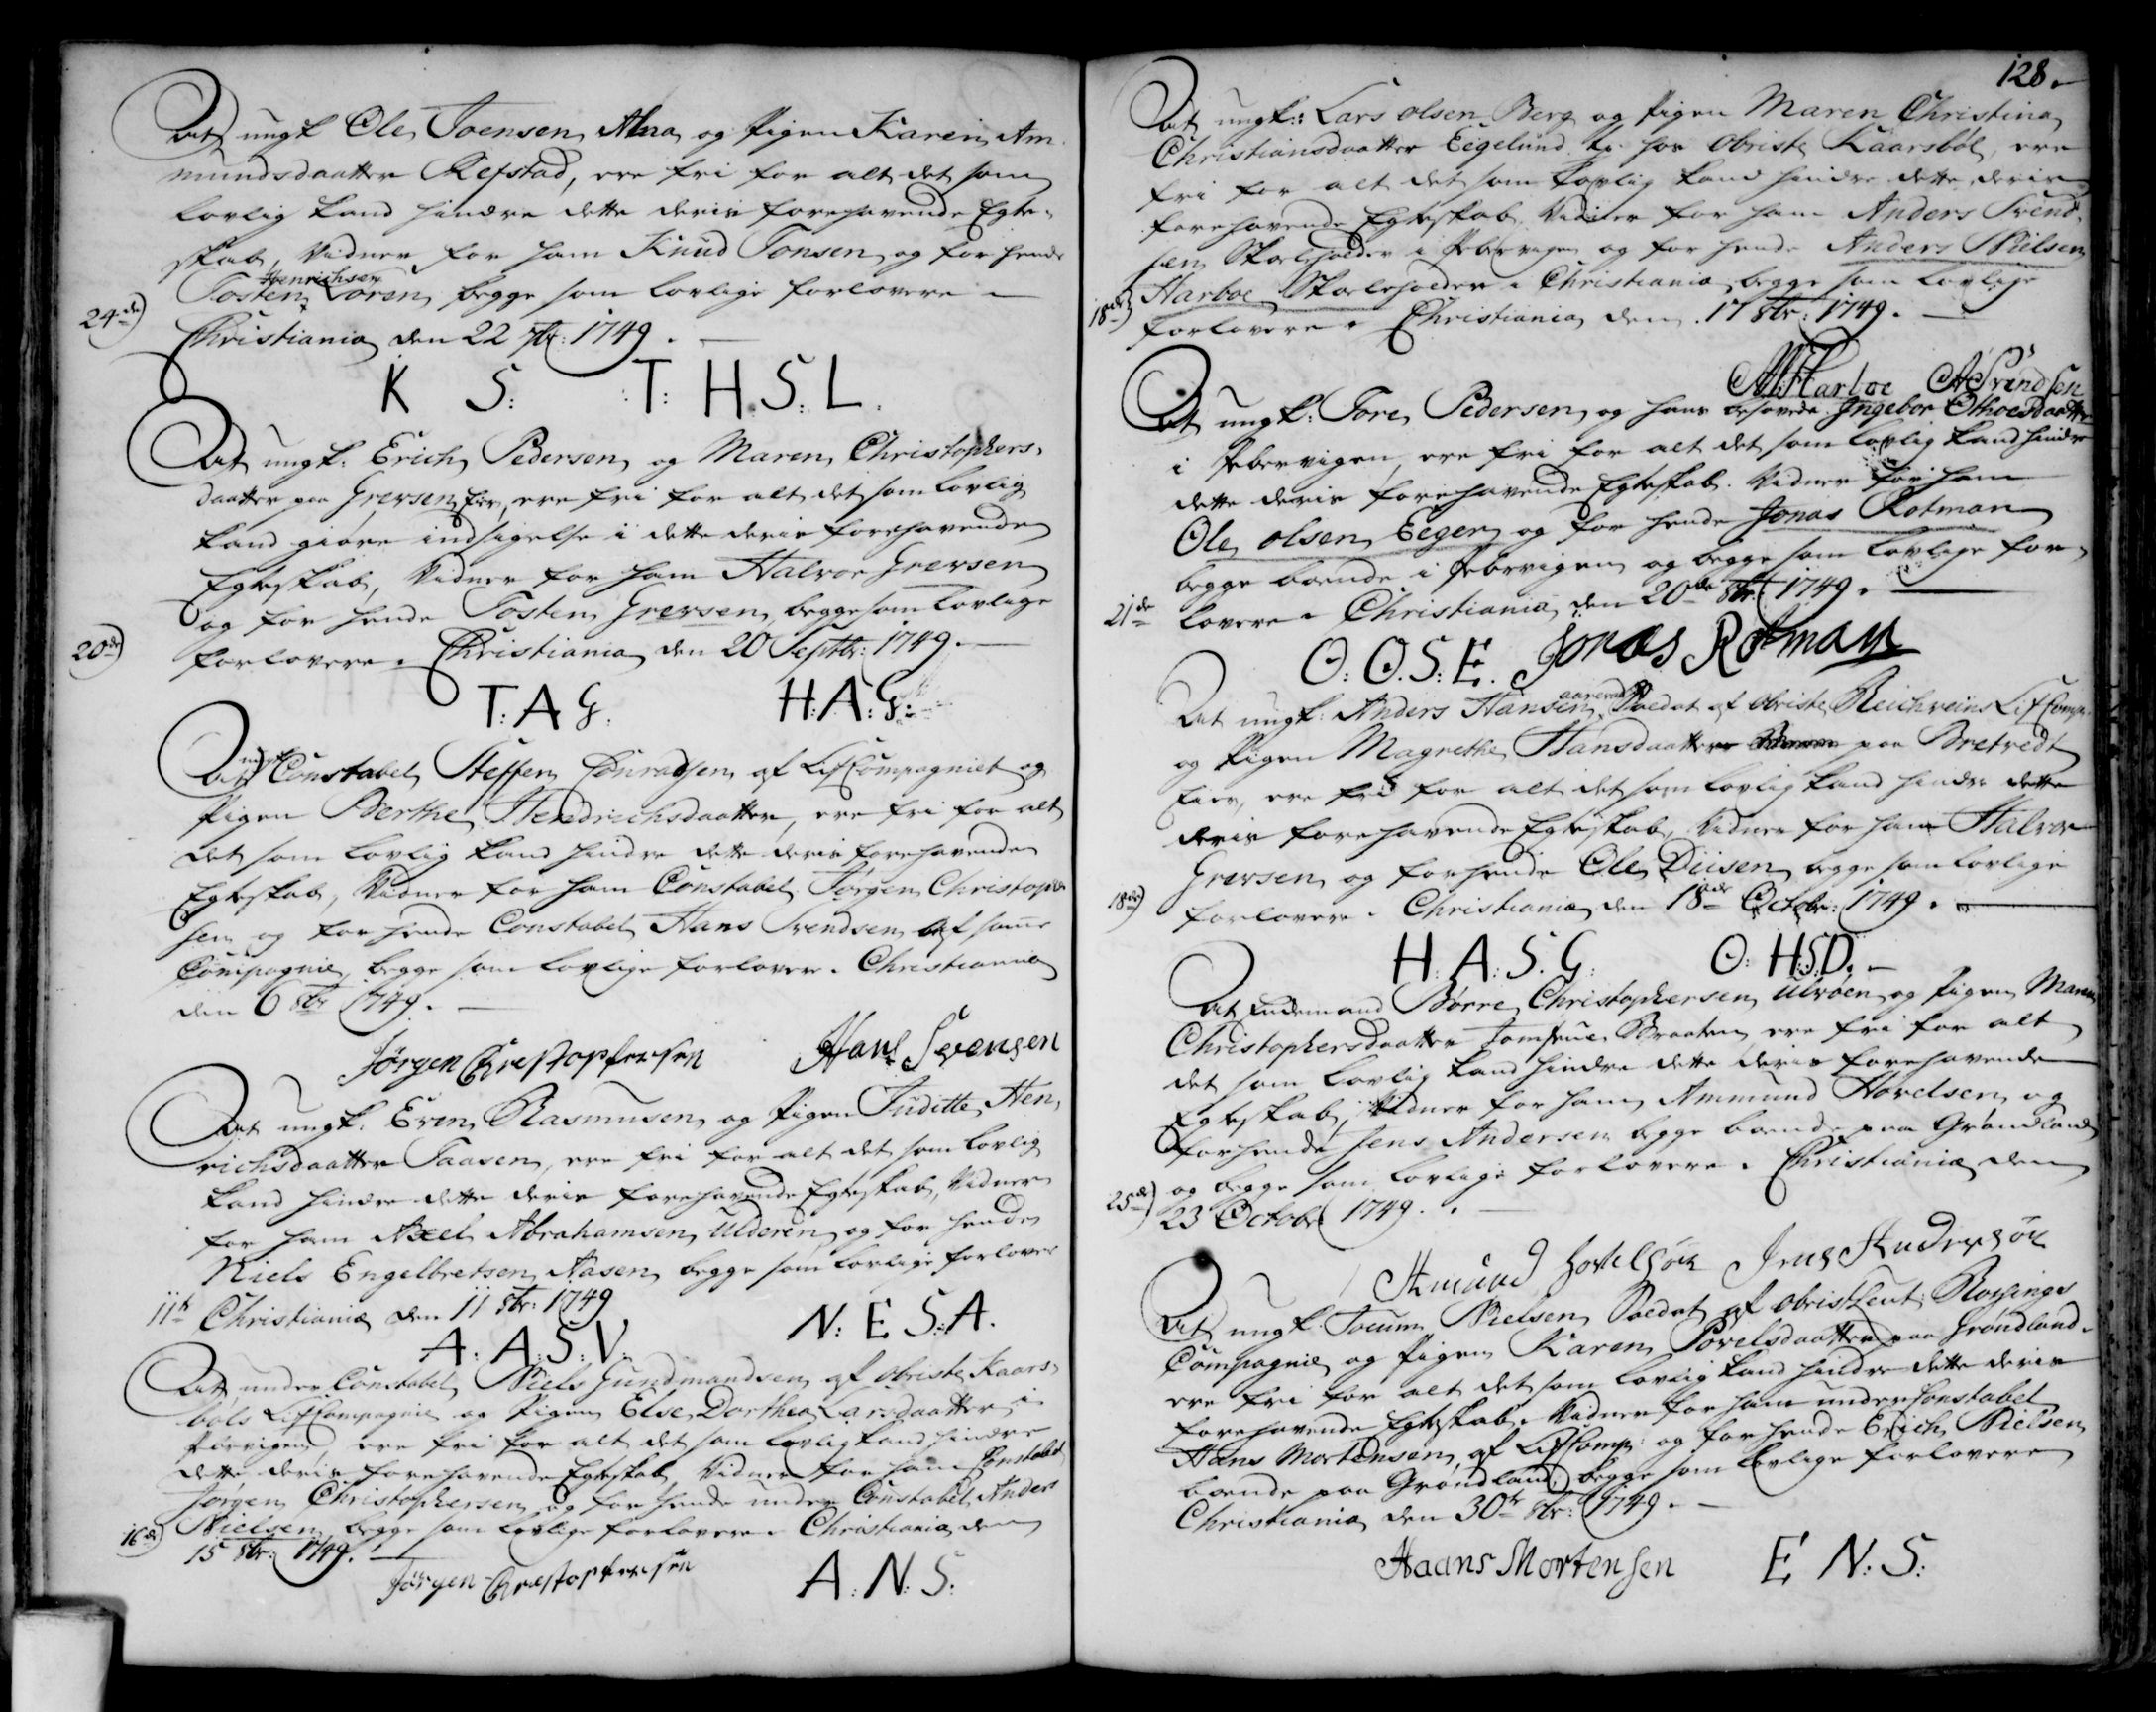 At ungk Ole Joensen Alna og Pigen Karen Am
mundsdaatter Refstad, ere fri for alt det som
lovlig kand hindre dette deris forehavende Egte-
skab, Vidner for ham Knud Tonsen og for hende
Henrichsen
Tosten Loren, begge som lovlige forlovere
24de) Christiania den 22 7br: 1749.
K S: T: H.S.L.
At ungk. Erich Pedersen og Maren Christophers-
daatter paa Grersen Eier, ere fri for alt det som lovlig
kand giøre indsigelse i dette deris forehavende
Egteskab, Vidner for ham Halvor Grersen
og for hende Tosten Grersen, begge som lovlige
20de) forlovere. Christiania den 20 Septbr: 1749.
T: A G. H: A: G:
ungk
At Constabel Steffen Conradsen af LifCompagniet og
Pigen Berthe Hendrichsdaatter, ere fri for alt
det som lovlig kand hindre dette deris forehavende
Egteskab, Vidner for ham Constabel Jørgen Christoph
sen og for hende Constabel Hans Svendsen af samme
Compagnie, begge som lovlige forlovere. Christiania
den 6 8br 1749.
Jørgen Christophersen Hans Svensen
At ungk. Even Rasmusen og Pigen Juditte Hen-
richsdaatter Taasen, ere fri for alt det som lovlig
kand hindre dette deris forehavende Egteskab, Vidner
for ham Axel Abrahamsen Ulderen og for hende
Niels Engelbretsen Aasen begge som lovlige forlover
11te Christiania den 11 8br: 1749
A: A: S: V. N: E S: A.
At under Constabel Niels Gundmandsen af Obriste Kaars-
bøls LifCompagnie og Pigen Else Dorthea Larsdaatter i
Pibervigen, ere fri for alt det som lovlig kand hindre
dette deris forehavende Egteskab, Vidner for ham Constabel
Jørgen Christophersen og for hende under Constabel Anders
16de) Nielsen, begge som lovlige forlovere. Christiania den
15 8br: 1749.
Jørgen Christophersen A: N: S:
128.
At ungk: Lars Olsen Berg og Pigen Maren Christina
Christiansdaatter Eegelund, hos Obriste Kaarsbøl, ere
fri for alt det som lovlig kand hindre dette deris
forehavende Egteskab. Vidner for ham Anders Svend-
sen Skoeleholder i Pebervigen og for hende Anders Nielsen
18de) Harboe Skoeleholder i Christiania begge som lovlige
forlovere. Christiania den 17 8br: 1749.
AN Harboe A Svendsen
At ungk: Tore Pedersen og hans Ingebor Othoesdaatter
i Pebervigen, ere fri for alt det som lovlig kand hindre
dette deris forehavende Egteskab. Vidner for ham
Ole Olsen Eeger og for hende Jonas Rotman
begge boende i Pebervigen og begge som lovlige for-
21de lovere. Christiania den 20de 8br: 1749.
O: O. S: E. Jonas Rotman
At ungk: Anders Hansen Soldat af Obriste Reichveins LifComp.
og Pigen Magrethe Hansdaatter paa Bretvedt
Eier, ere fri for alt det som lovlig kand hindre dette
deris forehavende Egteskab, Vidner for ham Halvor
Grersen og for hende Ole Diisen begge som lovlige
18de) forlovere. Christiania den 18de Octobr: 1749.
H. A: S. G: O: H:S:D.
At Enckemand Børre Christophersen Ulvøen og Pigen Maren
Christophersdaatter Jomfrue Braaten, ere fri for alt
det som lovlig kand hindre dette deris forehavende
Egteskab, Vidner for ham Ammund Hovelsen og
for hende Jens Andersen begge boende paa Grøndland
og begge som lovlige forlovere. Christiania den
25de) 23 Octobr 1749.
Amund Hovelsøn Jens Andersøn
At ungk. Jocum Nielsen Soldat af ObristLeut: Røysings
Compagnie og Pigen Karen Povelsdaatter paa Grøndland.
ere fri for alt det som lovlig kand hindre dette deris
forehavende Egteskab. Vidner for ham under Constabel
Hans Mortensen, af LifComp: og for hende Erich Nielsen
boende paa Grøndland, begge som lovlige forlovere
Christiania den 30te 8br: 1749.
Haans Mortensen E N: S: